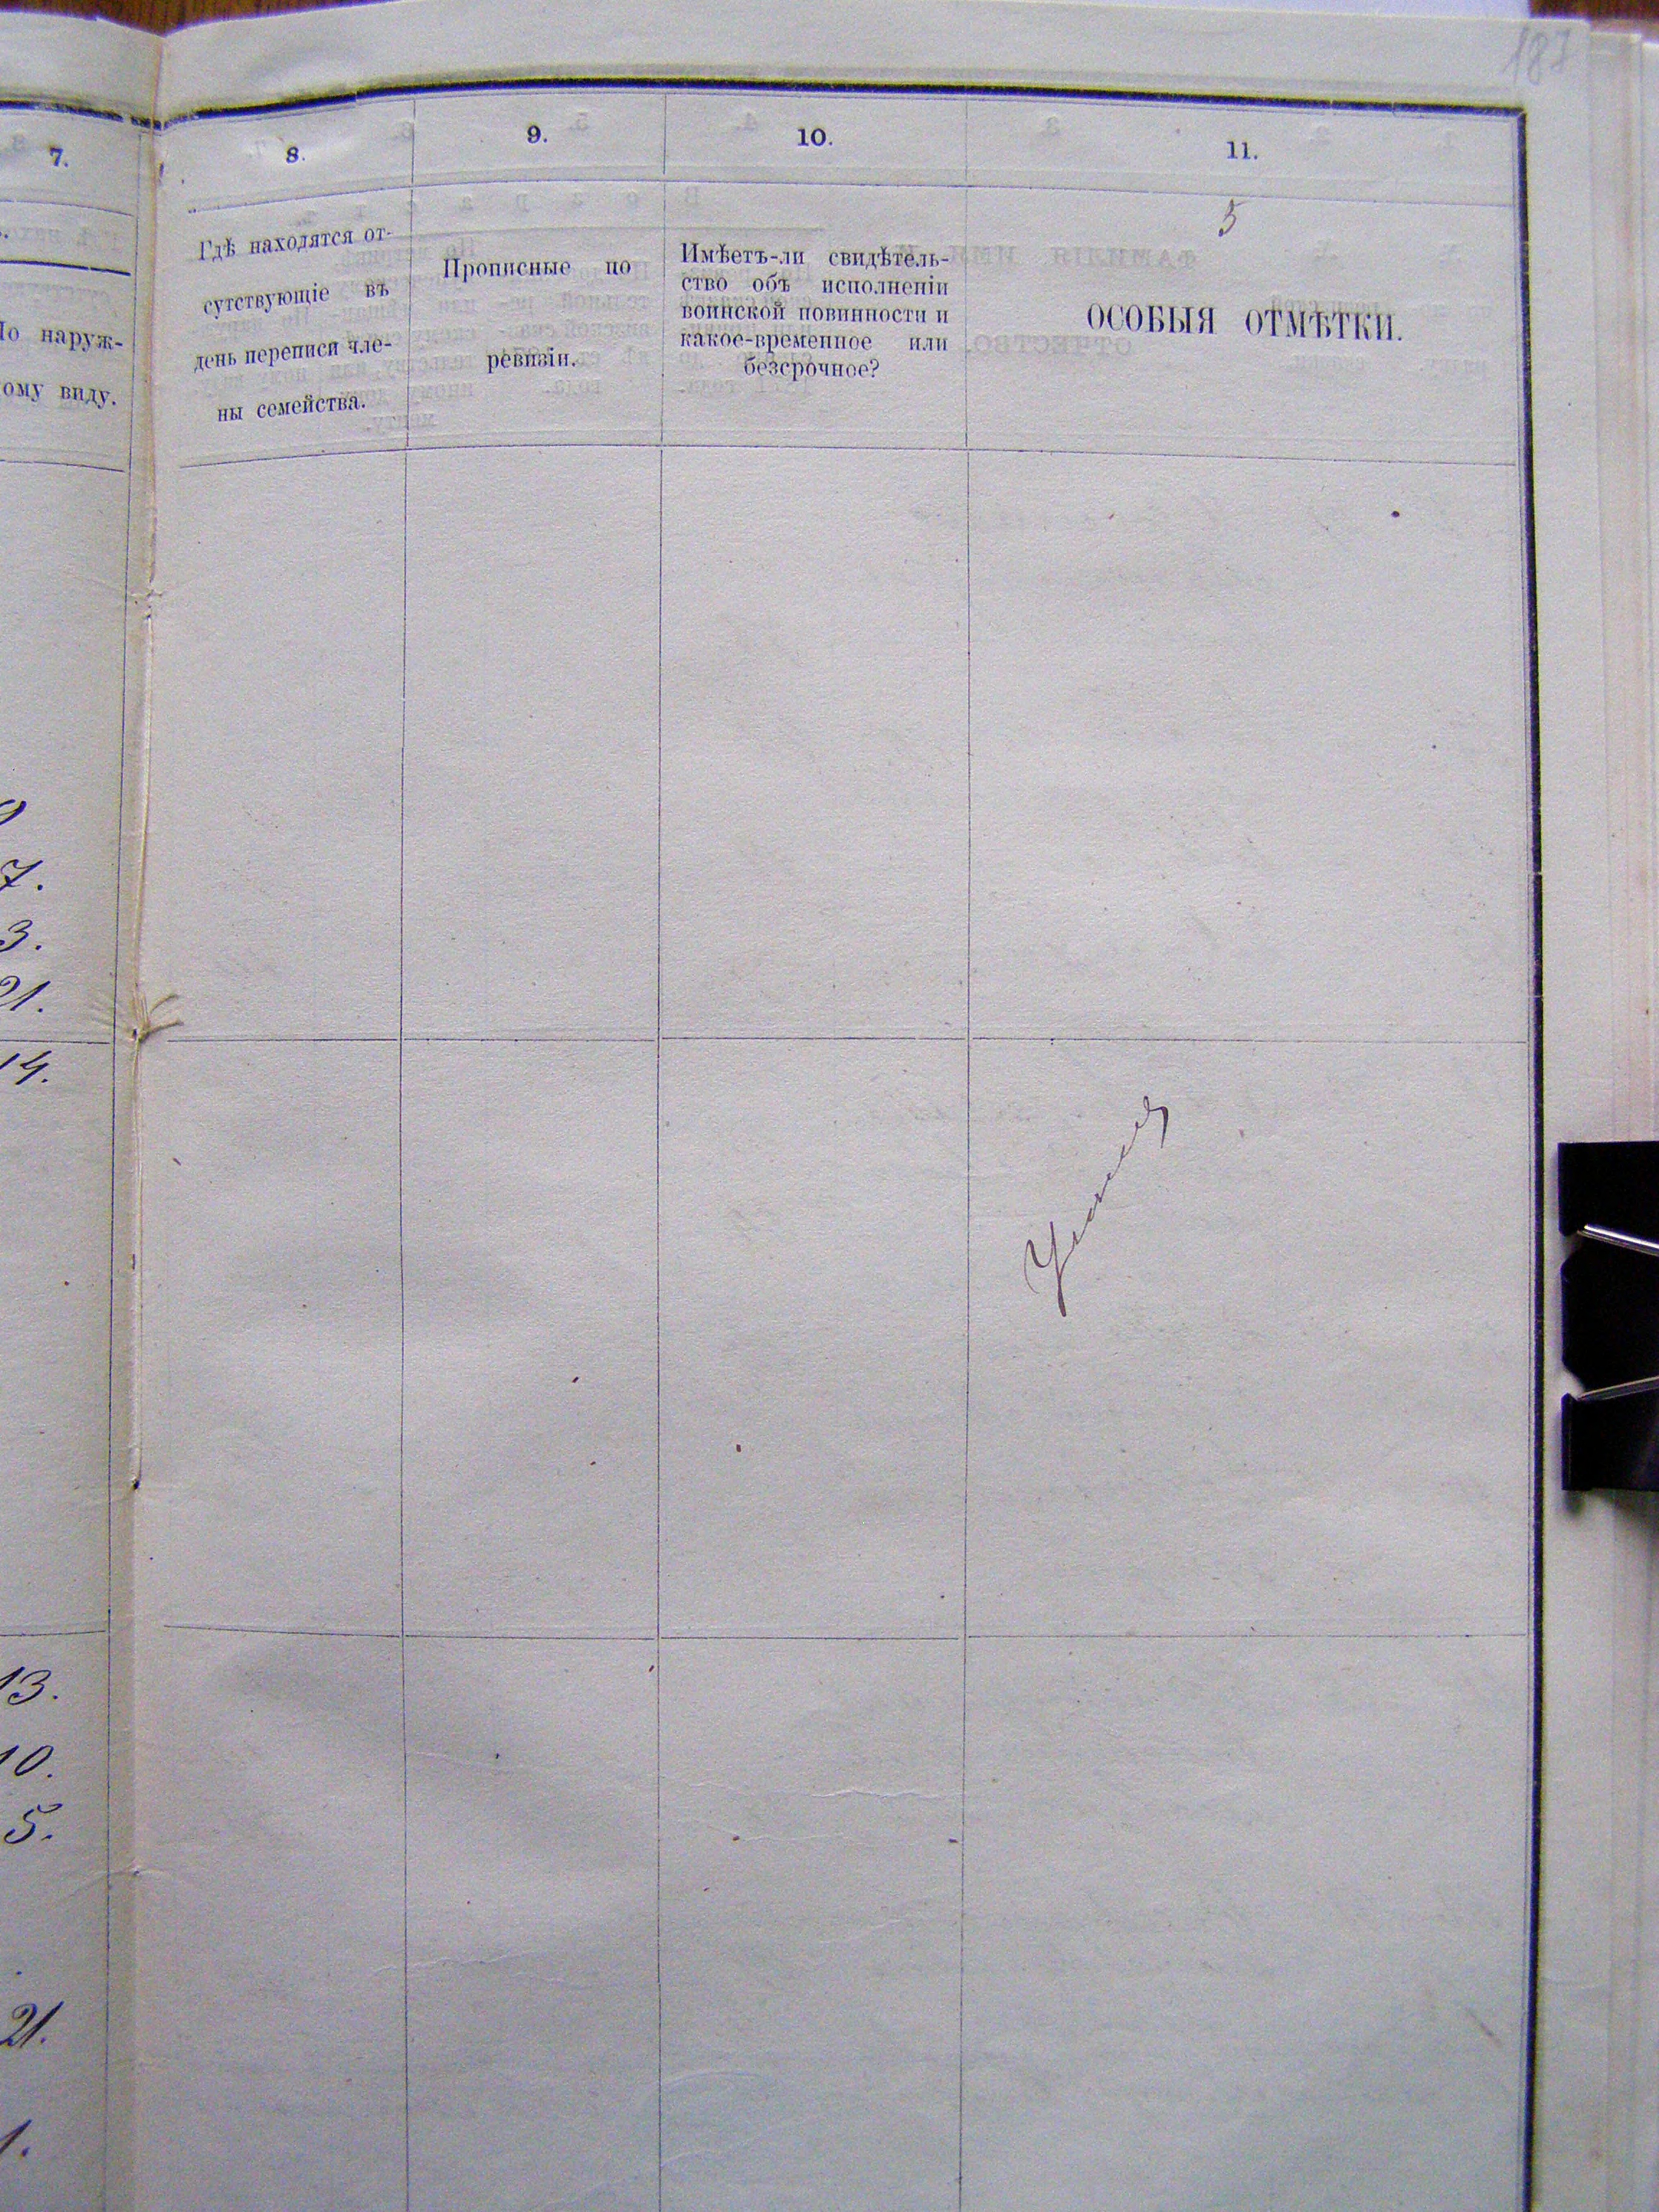 187
7.
8.
9.
10.
11.
5
По наруж-
ому виду.
Гдѣ находятся от-
сутствующіе въ
день переписи чле-
ны семейства.
Прописные по
ревизіи.
Имѣетъ-ли свидѣтель-
ство объ исполненіи
воинской повинности и
какое-временное или
безсрочное?
ОСОБЫЯ ОТМѢТКИ.
7.
3.
21.
14.
13.
10.
5.
21.
1.